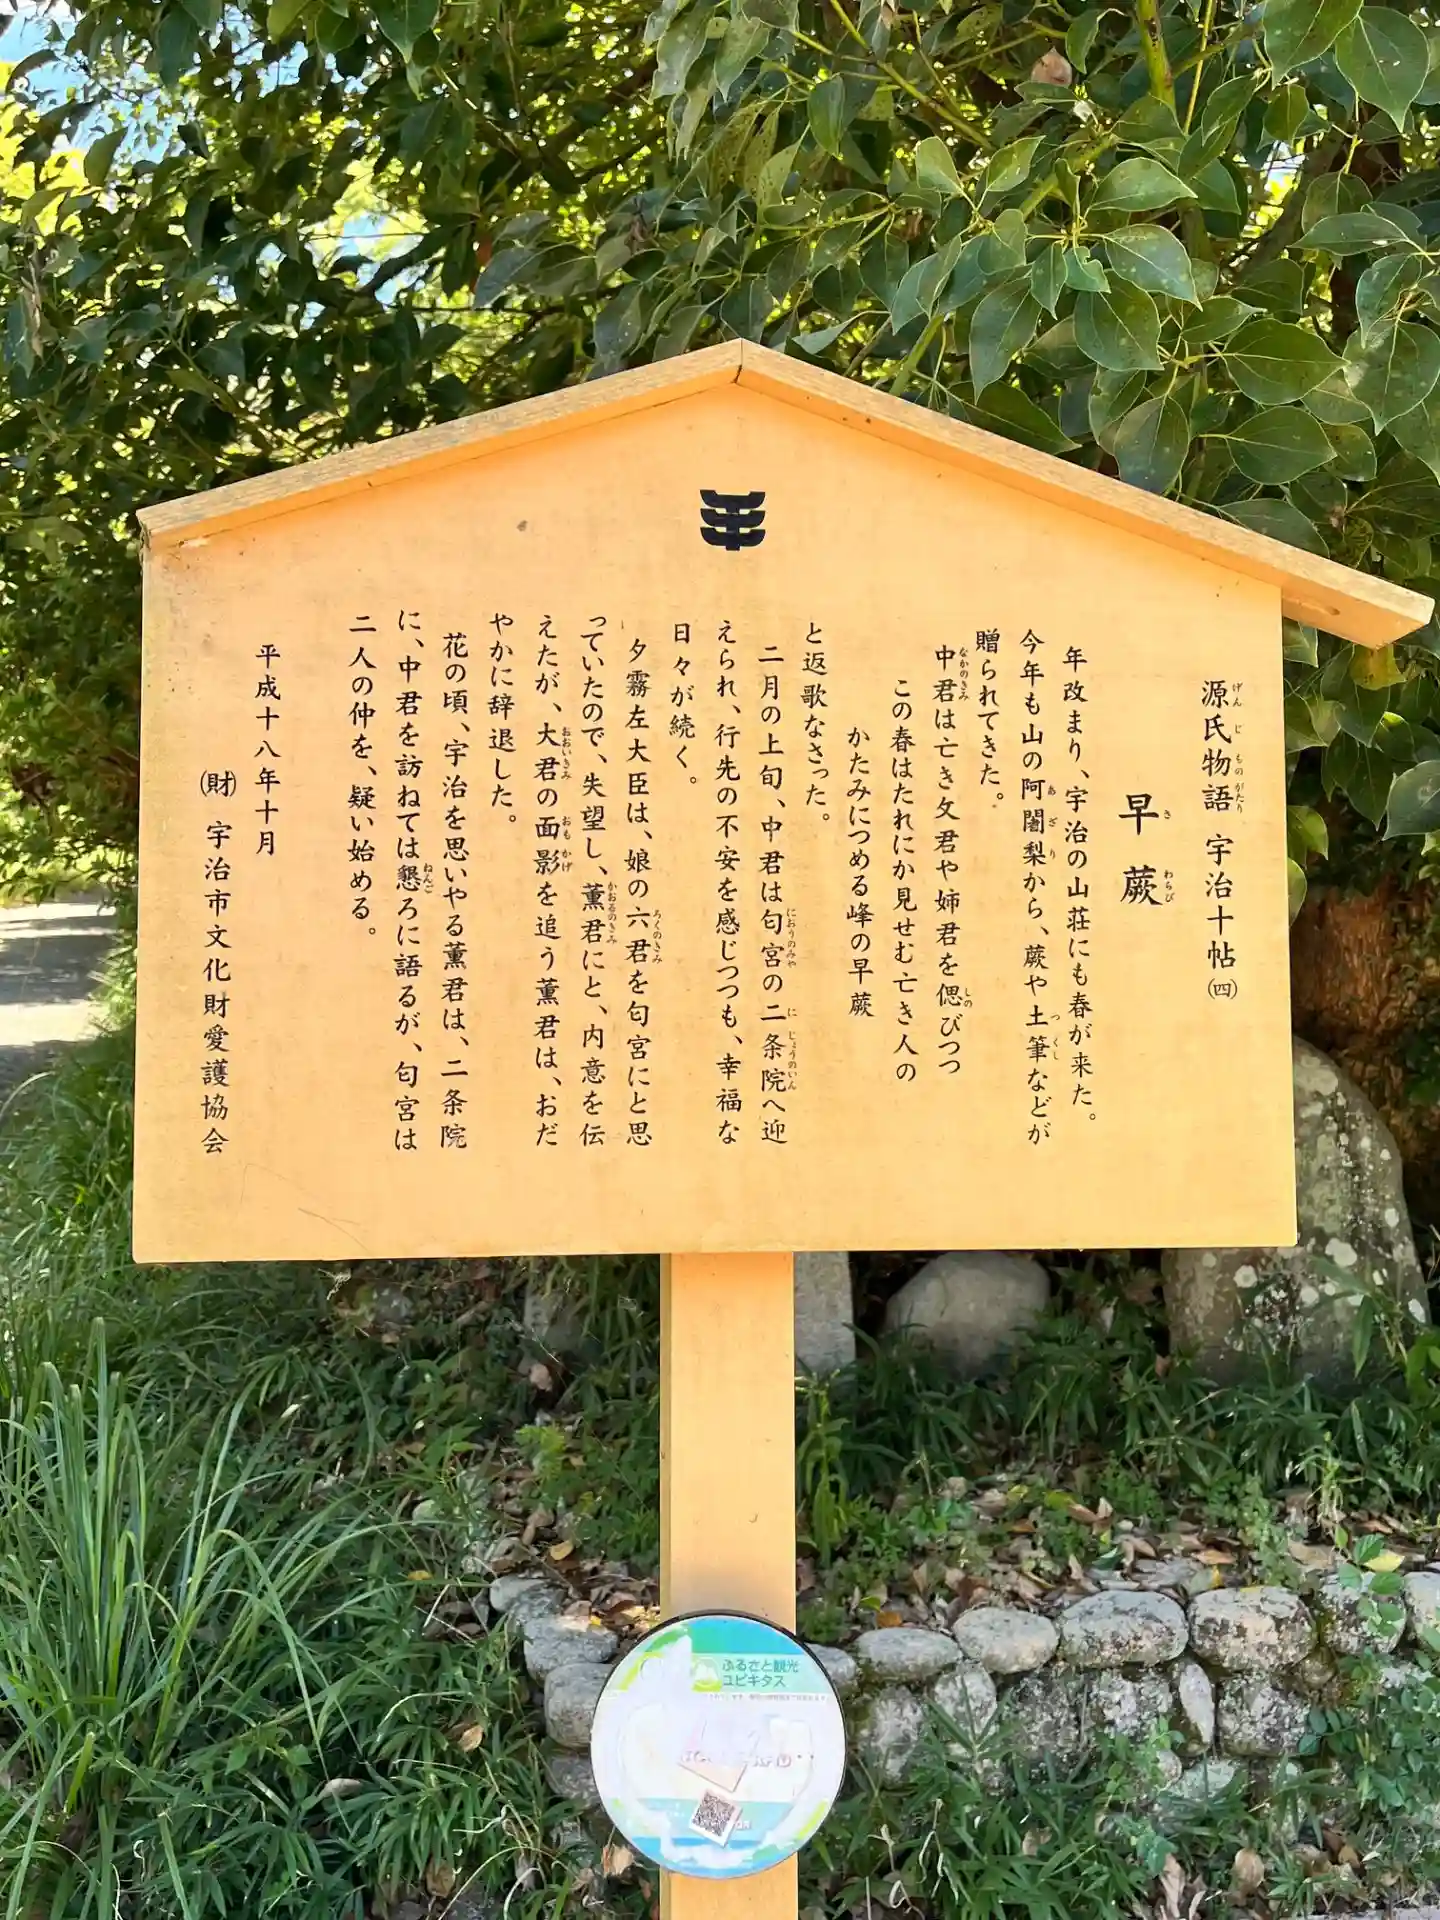 源氏物語 宇治十帖㈣
早蕨
年改まり、宇治の山荘にも春が来た。
今年も山の阿闍梨から、蕨や土筆などが
贈られてきた。
中君は亡き父君や姉君を偲びつつ
この春はたれにか見せむ亡き人の
かたみにつめる峰の早蕨
と返歌なさった。
二月の上旬、中君は匂宮の二条院へ迎
えられ、行先の不安を感じつつも、幸福な
日々が続く。
夕霧左大臣は、娘の六君を匂宮にと思
っていたので、失望し、薫君にと、内意を伝
えたが、大君の面影を追う薫君は、おだ
やかに辞退した。
花の頃、宇治を思いやる薫君は、二条院
に、中君を訪ねては懇ろに語るが、匂宮は
二人の仲を、疑い始める。
平成十八年十月
㈶ 宇治市文化財愛護協会
ふるさと観光
ユビキタス